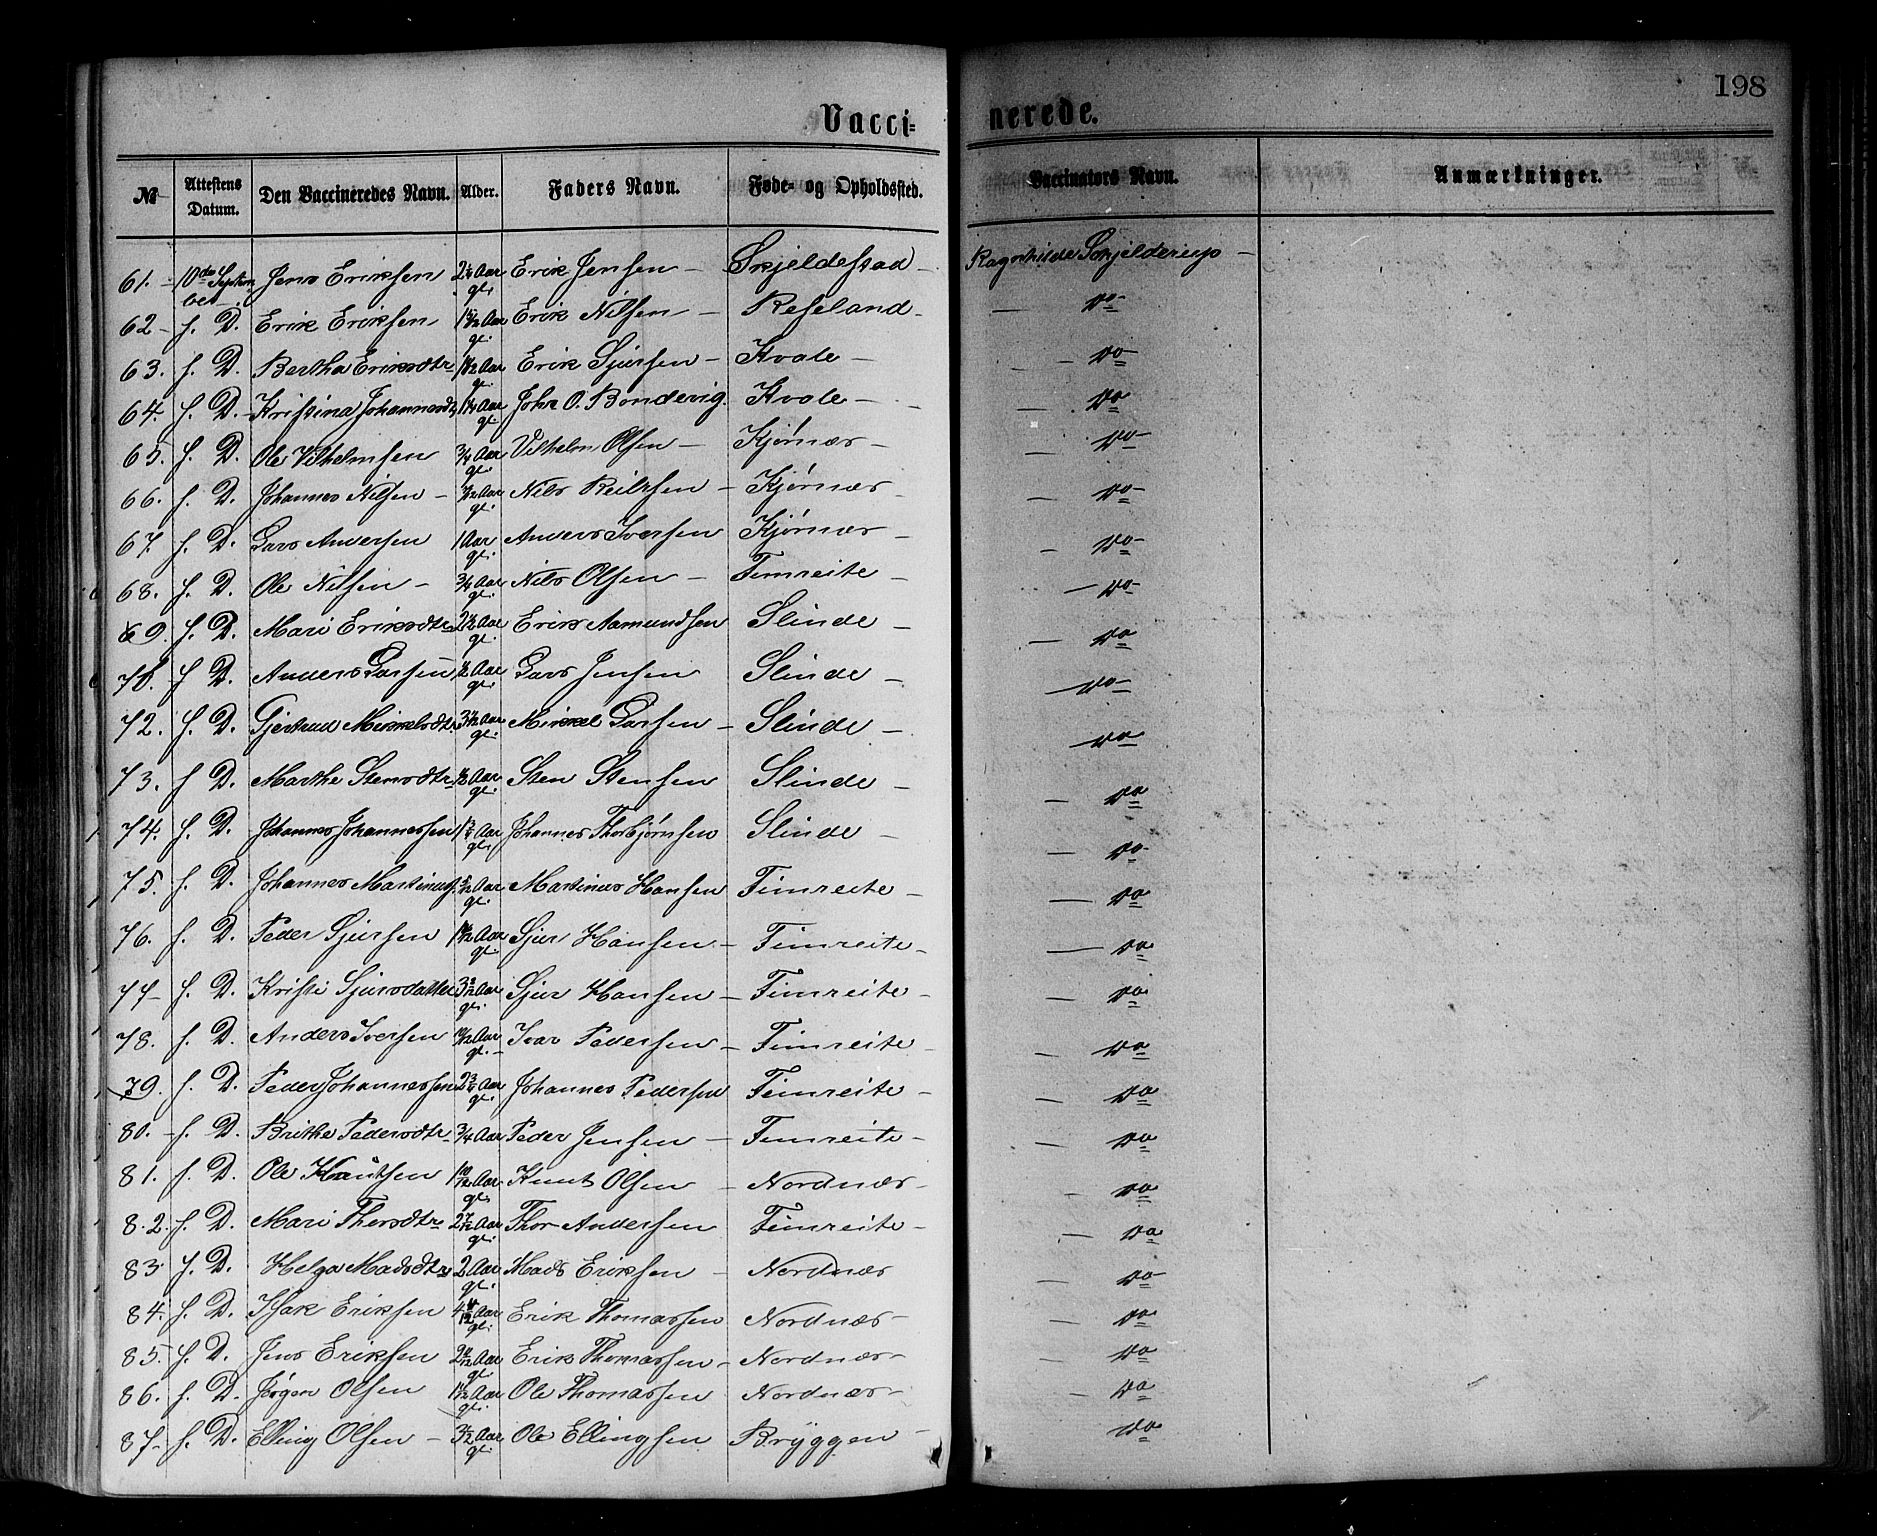 198
Vacci= nerede.
№ Attestens Datum. Den Vaccineredes Navn. Alder. Faders Navn. Føde- og Opholdssted. Vaccinators Navn. Anmærkninger.
61. 10de September Jens Eriksen Aar gl. Erik Jensen — Skjeldestad — Ragnhilde Schjelderup —
62 — s. D. Erik Eriksen Aar gl. Erik Nilsen — Reseland — — do —
63. s. D. Bertha Eriksdtr Aar gl. Erik Sjursen — Kvale — — do
64. s. D. Kristina Johannesdt Aar gl. Joh. O. Bondevig. Kvale — — do
65. s. D. Ole Vilhelmsen 3/4 Aar gl. Vilhelm Olsen — Kjørnæs — — do —
66. s. D. Johannes Nilsen — Aar gl. Nils — Kjørnæs — — do —
67. s. D. Lars Andersen 1 Aar gl. Anders Iversen Kjørnæs — — do —
68. s. D. Ole Nilsen — 3/4 Aar gl. Nils Olsen — Timreite — — do —
69. s. D. Mari Eriksdtr Aar gl. Erik Aamundsen Slinde — — do
s. D. Anders Larsen 1/2 Aar gl. Lars Jensen Slinde — — do —
72. s. D. Gjertrud Mikkelsdtr Aar gl. Mikkel Larsen — Slinde — — do
73. s. D. Marthe Stensdtr Aar gl. Sten Stensen Slinde — — do
74. s. D. Johannes Johannessen Aar gl. Johannes Thorbjørnsen Slinde — — do
75. s. D. Johannes Martinus. Aar gl. Martinus Hansen Timreite — — do
76. s. D. Peder Sjursen Aar gl. Sjur Hansen — Timreite — — do
77 — s. D. Kristi Sjursdatter Aar gl. Sjur Hansen — Timreite — — do
78. s. D. Anders Iversen Aar gl. Ivar Pedersen — Timreite — — do
79. s. D. Peder Johannessen Aar gl. Johannes Pedersen Timreite — — do
80. — s. D. Brithe Pedersdtr 3/4 Aar Peder Jensen — Timreite — — do
81. s. D. Ole Knutsen 1 10/12 Aar gl. Knut Olsen — Nordnæs — — do
82. s. D. Mari Thorsdtr 2 7/12 Aar gl. Thor Andersen Timreite — — do
83. s. D. Helga Madsdtr 2 Aar gl. Mads Eriksen — Nordnæs — do
84. s. D. Isak Eriksen Aar gl. Erik Thomassen Nordnæs — — do
85. s. D. Jens Eriksen Aar gl. Erik Thomassen — Nordnæs — — do
86. s. D. Jørgen Olsen Aar gl. Ole Thomassen Nordnæs — — do
87 — s. D. Elling Olsen — Aar gl. Ole Ellingsen Bryggen — do